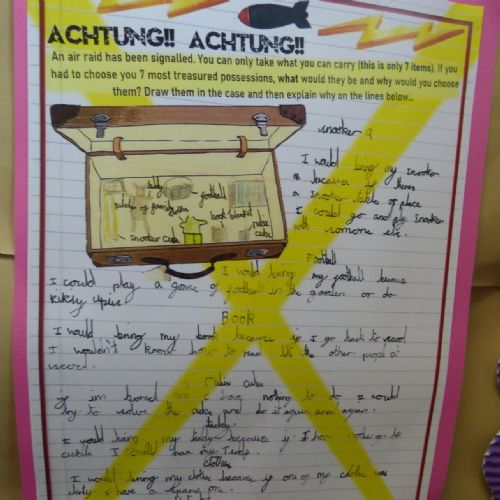 ACHTUNG!! ACHTUNG!!
An air raid has been signalled. You can only take what you can carry (this is only 7 items). If you
had to choose you 7 most treasured possessions, what would they be and why would you choose
them? Draw them in the case and then explain why on the lines below...
teddy
football
book blanket
snooker cube
snooker q
I would bring my snooker
q because if theres
a snooker table of place
I could go and play snooker
with someone else.
Football
I would bring my football because
I could play a game of football in the garden or do
kicky upies
Book
I would bring my book because if I go back to
I wouldn't know how to read like the other at
cube
if im bored and I have nothing to do I could
try to solve the cube and do it again and again.
teddy
I would bring my teddy because if I have to
I would have my
clothes
I would bring my clothes because if one of my clothes
I have a spare one.